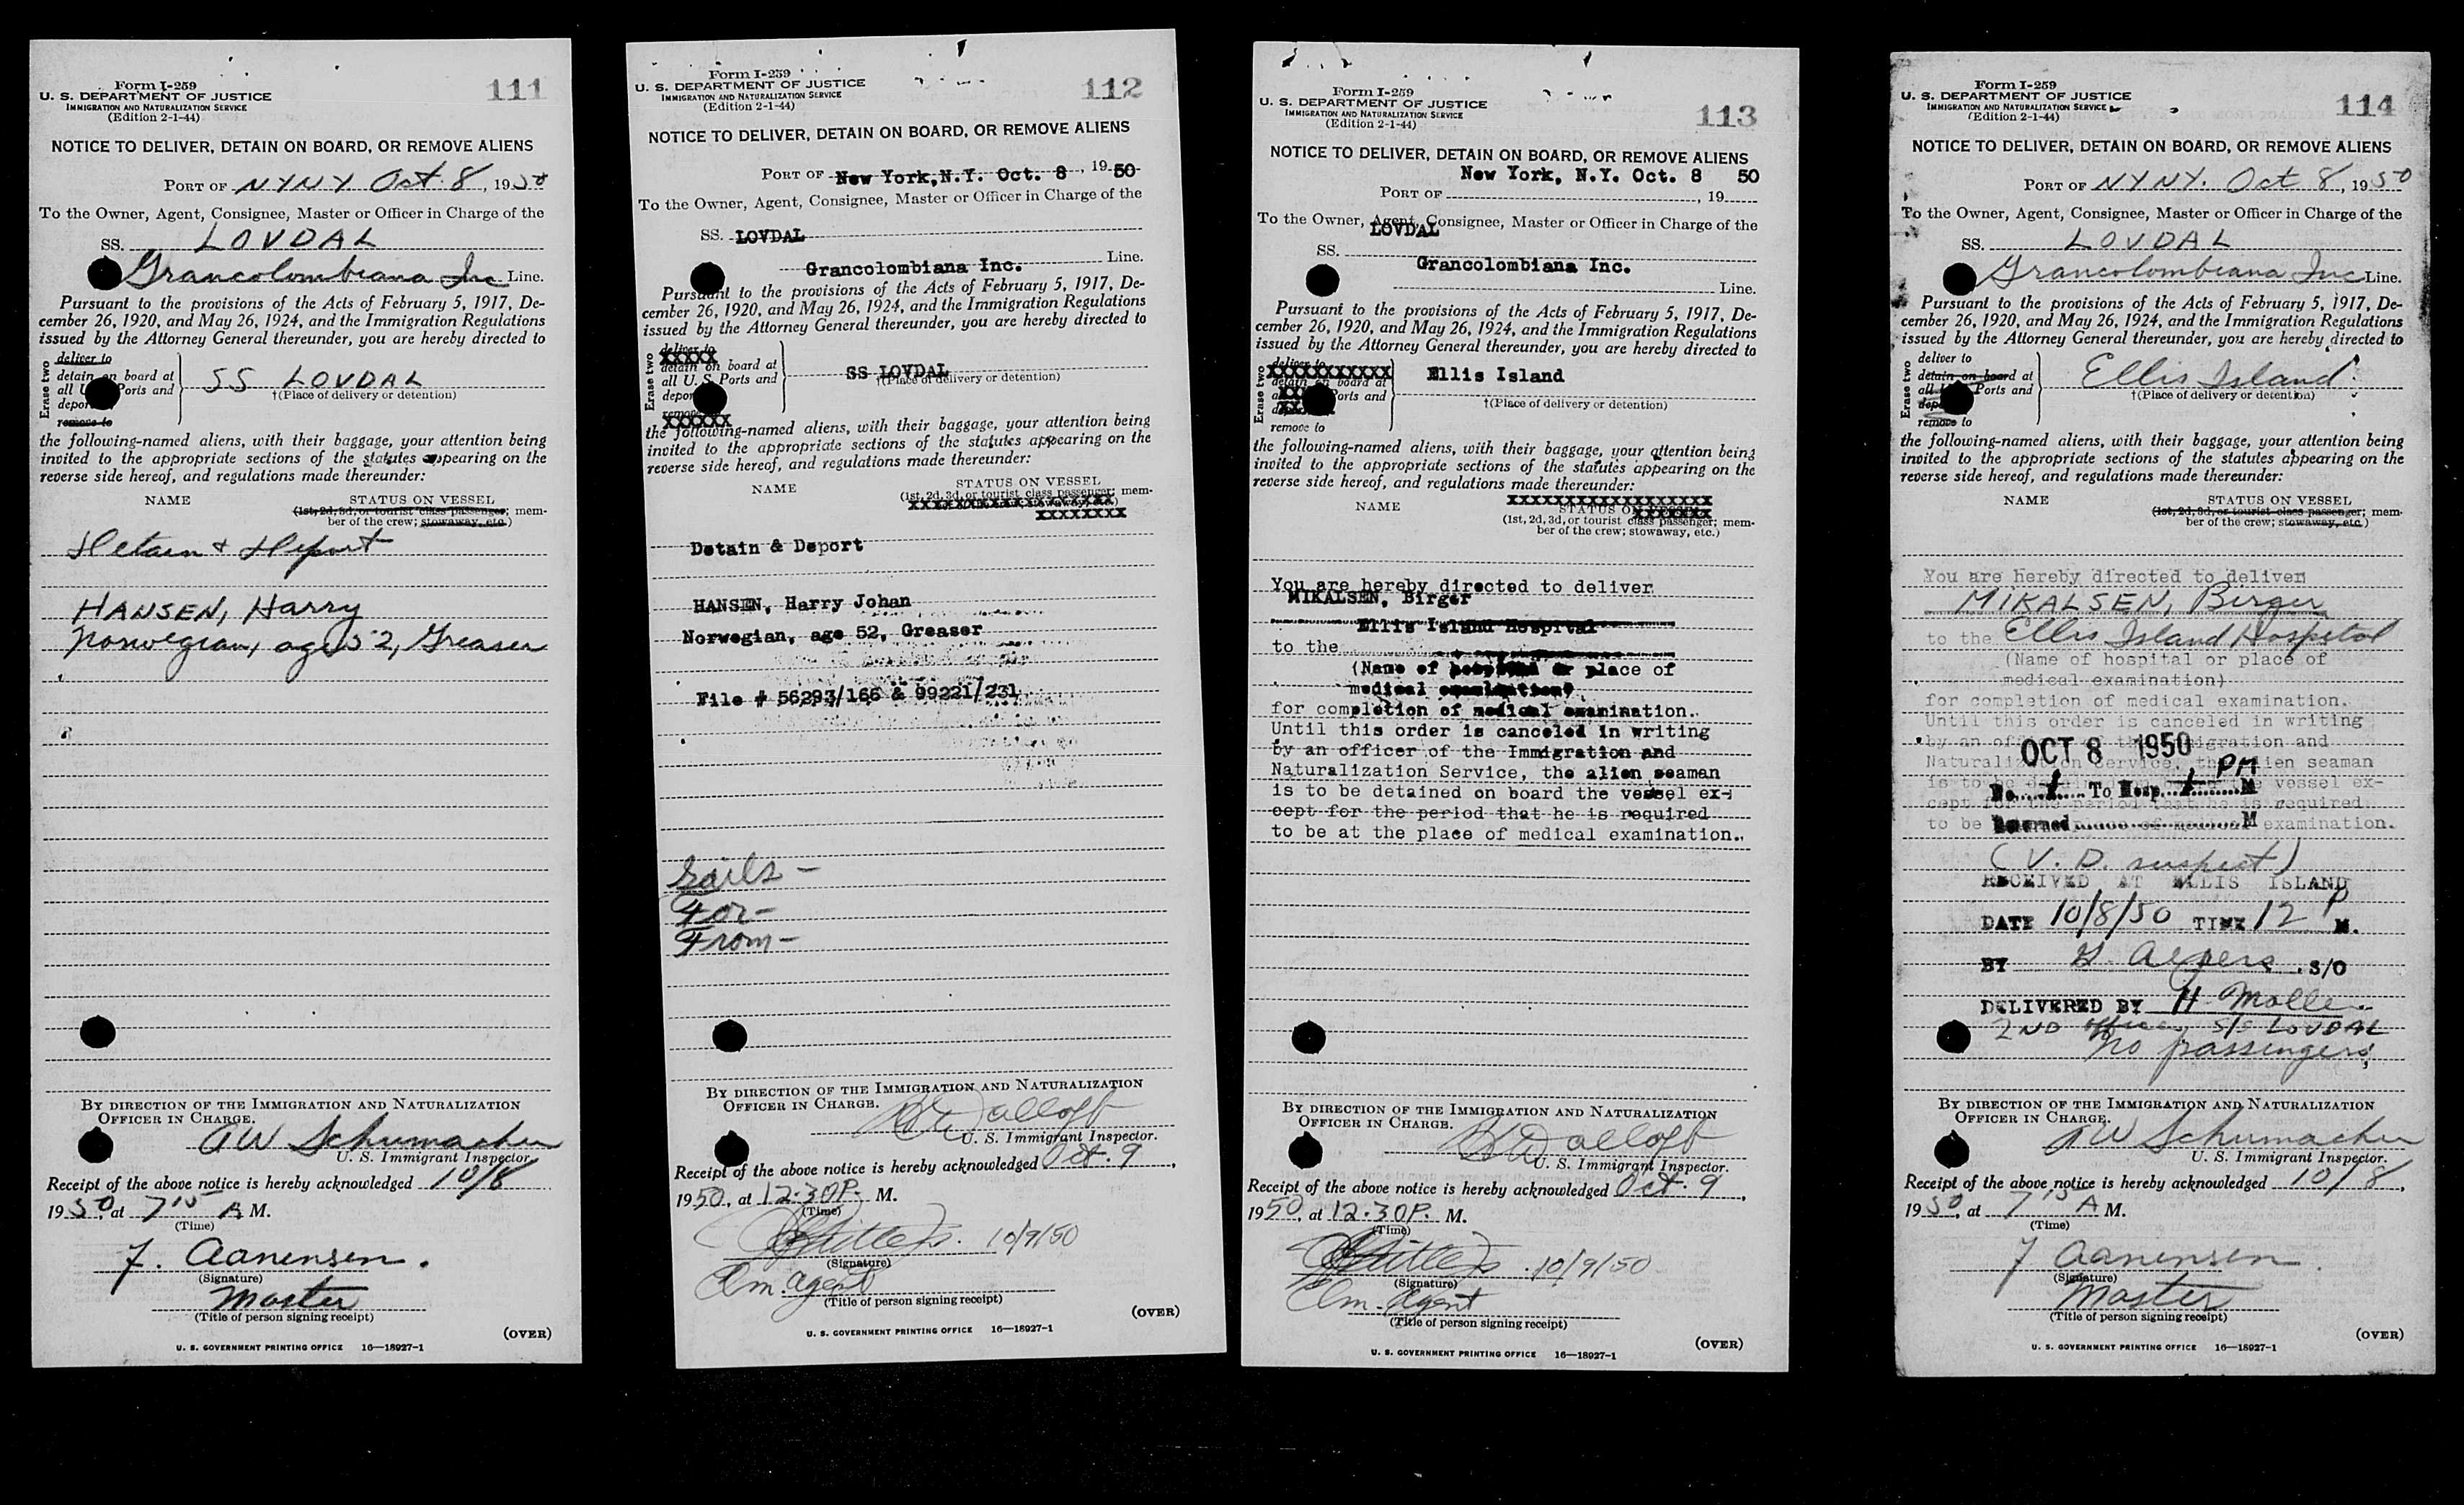 Form I-259
U. S. DEPARTMENT OF JUSTICE
IMMIGRATION AND NATURALIZATION SERVICE
(Edition 2-1-44)
111
NOTICE TO DELIVER, DETAIN ON BOARD, OR REMOVE ALIENS
PORT OF NYNY Oct. 8, 1950
To the Owner, Agent, Consignee, Master or Officer in Charge of the
SS. LOVDAL
Grancolombiana Inc Line.
Pursuant to the provisions of the Acts of February 5, 1917, De-
cember 26, 1920, and May 26, 1924, and the Immigration Regulations
issued by the Attorney General thereunder, you are hereby directed to
Erase two
deliver to
detain on board at
all U Ports and
depor
remove to
SS LOVDAL
†(Place of delivery or detention)
the following-named aliens, with their baggage, your attention being
invited to the appropriate sections of the statutes appearing on the
reverse side hereof, and regulations made thereunder:
NAME STATUS ON VESSEL
(1st, 2d, 3d, or tourist class passenger; mem-
ber of the crew; stowaway, etc.)
Detain & Deport
HANSEN, Harry
Norwegian, age 52, Greaser
BY DIRECTION OF THE IMMIGRATION AND NATURALIZATION
OFFICER IN CHARGE.
AW Schumacher
U. S. Immigrant Inspector.
Receipt of the above notice is hereby acknowledged 10/8
1950, at 7 15 A M.
(Time)
F. Aanensen.
(Signature)
Master
(Title of person signing receipt)
(OVER)
U. S. GOVERNMENT PRINTING OFFICE 16—18927-1
Form I-259
U. S. DEPARTMENT OF JUSTICE
IMMIGRATION AND NATURALIZATION SERVICE
(Edition 2-1-44)
112
NOTICE TO DELIVER, DETAIN ON BOARD, OR REMOVE ALIENS
PORT OF New York, N.Y. Oct. 8, 1950
To the Owner, Agent, Consignee, Master or Officer in Charge of the
SS. LOVDAL
Grancolombiana Inc. Line.
Pursuant to the provisions of the Acts of February 5, 1917, De-
cember 26, 1920, and May 26, 1924, and the Immigration Regulations
issued by the Attorney General thereunder, you are hereby directed to
Erase two
deliver to
XXXXX
detain on board at
all U. S. Ports and
depor
remove
XXXXXX
SS LOVDAL
†(Place of delivery or detention)
the following-named aliens, with their baggage, your attention being
invited to the appropriate sections of the statutes appearing on the
reverse side hereof, and regulations made thereunder:
NAME STATUS ON VESSEL
(1st, 2d, 3d, or tourist class passenger; mem-
XXXXXXXX
Detain & Deport
HANSEN, Harry Johan
Norwegian, age 52, Greaser
File # 56293/166 & 99221/231
Sails -
For -
From -
BY DIRECTION OF THE IMMIGRATION AND NATURALIZATION
OFFICER IN CHARGE.
U. S. Immigrant Inspector.
Receipt of the above notice is hereby acknowledged Oct. 9,
1950, at 12.30P. M.
(Time)
10/9/50
(Signature)
Im. Agent
(Title of person signing receipt)
(OVER)
U. S. GOVERNMENT PRINTING OFFICE 16—18927-1
Form I-259
U. S. DEPARTMENT OF JUSTICE
IMMIGRATION AND NATURALIZATION SERVICE
(Edition 2-1-44)
113
NOTICE TO DELIVER, DETAIN ON BOARD, OR REMOVE ALIENS
New York, N.Y. Oct. 8 50
PORT OF , 19
To the Owner, Agent, Consignee, Master or Officer in Charge of the
LOVDAL
SS.
Grancolombiana Inc.
Line.
Pursuant to the provisions of the Acts of February 5, 1917, De-
cember 26, 1920, and May 26, 1924, and the Immigration Regulations
issued by the Attorney General thereunder, you are hereby directed to
Erase two
deliver to
XXXXXXXXXXX
detain on board at
Ports and
remove to
Ellis Island
†(Place of delivery or detention)
the following-named aliens, with their baggage, your attention being
invited to the appropriate sections of the statutes appearing on the
reverse side hereof, and regulations made thereunder:
XXXXXXXXXXXXXXXXXXX
NAME STATUS ON VESSEL
(1st, 2d, 3d, or tourist class passenger; mem-
ber of the crew; stowaway, etc.)
You are hereby directed to deliver
MIKALSEN, Birger
Ellis Island Hospital
to the
(Name of hospital or place of
medical examination)
for completion of medical examination.
Until this order is canceled in writing
by an officer of the Immigration and
Naturalization Service, the alien seaman
is to be detained on board the vessel ex-
cept for the period that he is required
to be at the place of medical examination.
BY DIRECTION OF THE IMMIGRATION AND NATURALIZATION
OFFICER IN CHARGE.
U. S. Immigrant Inspector.
Receipt of the above notice is hereby acknowledged Oct. 9,
1950, at 12.30P. M.
(Time)
10/9/50
(Signature)
Im. Agent
(Title of person signing receipt)
(OVER)
U. S. GOVERNMENT PRINTING OFFICE 16—18927-1
Form I-259
U. S. DEPARTMENT OF JUSTICE
IMMIGRATION AND NATURALIZATION SERVICE
(Edition 2-1-44)
114
NOTICE TO DELIVER, DETAIN ON BOARD, OR REMOVE ALIENS
PORT OF NYNY. Oct 8, 1950
To the Owner, Agent, Consignee, Master or Officer in Charge of the
SS. LOVDAL
Grancolombiana Inc Line.
Pursuant to the provisions of the Acts of February 5, 1917, De-
cember 26, 1920, and May 26, 1924, and the Immigration Regulations
issued by the Attorney General thereunder, you are hereby directed to
Erase two
deliver to
detain on board at
all Ports and
depo
remove to
Ellis Island
†(Place of delivery or detention)
the following-named aliens, with their baggage, your attention being
invited to the appropriate sections of the statutes appearing on the
reverse side hereof, and regulations made thereunder:
NAME STATUS ON VESSEL
(1st, 2d, 3d, or tourist class passenger; mem-
ber of the crew; stowaway, etc.)
You are hereby directed to deliver
MIKALSEN, Birger
to the Ellis Island Hospital
(Name of hospital or place of
medical examination)
for completion of medical examination.
Until this order is canceled in writing
by an officer of the Immigration and
OCT 8 1950
Naturalization Service, the alien seaman
PM
is to be detained on board the vessel ex-
No. 1 To Hosp. 1 M
cept for the period that he is required
to be place of medical examination.
Returned M
(V. D. suspect)
RECEIVED AT ELLIS ISLAND
DATE 10/8/50 TIME 12 P M.
BY S/O
DELIVERED BY H. Molle
2ND officer, S/S LOVDAL
no passengers,
BY DIRECTION OF THE IMMIGRATION AND NATURALIZATION
OFFICER IN CHARGE.
AW Schumacher
U. S. Immigrant Inspector.
Receipt of the above notice is hereby acknowledged 10/8,
1950, at 7 15 A M.
(Time)
F Aanensen.
(Signature)
Master
(Title of person signing receipt)
(OVER)
U. S. GOVERNMENT PRINTING OFFICE 16—18927-1